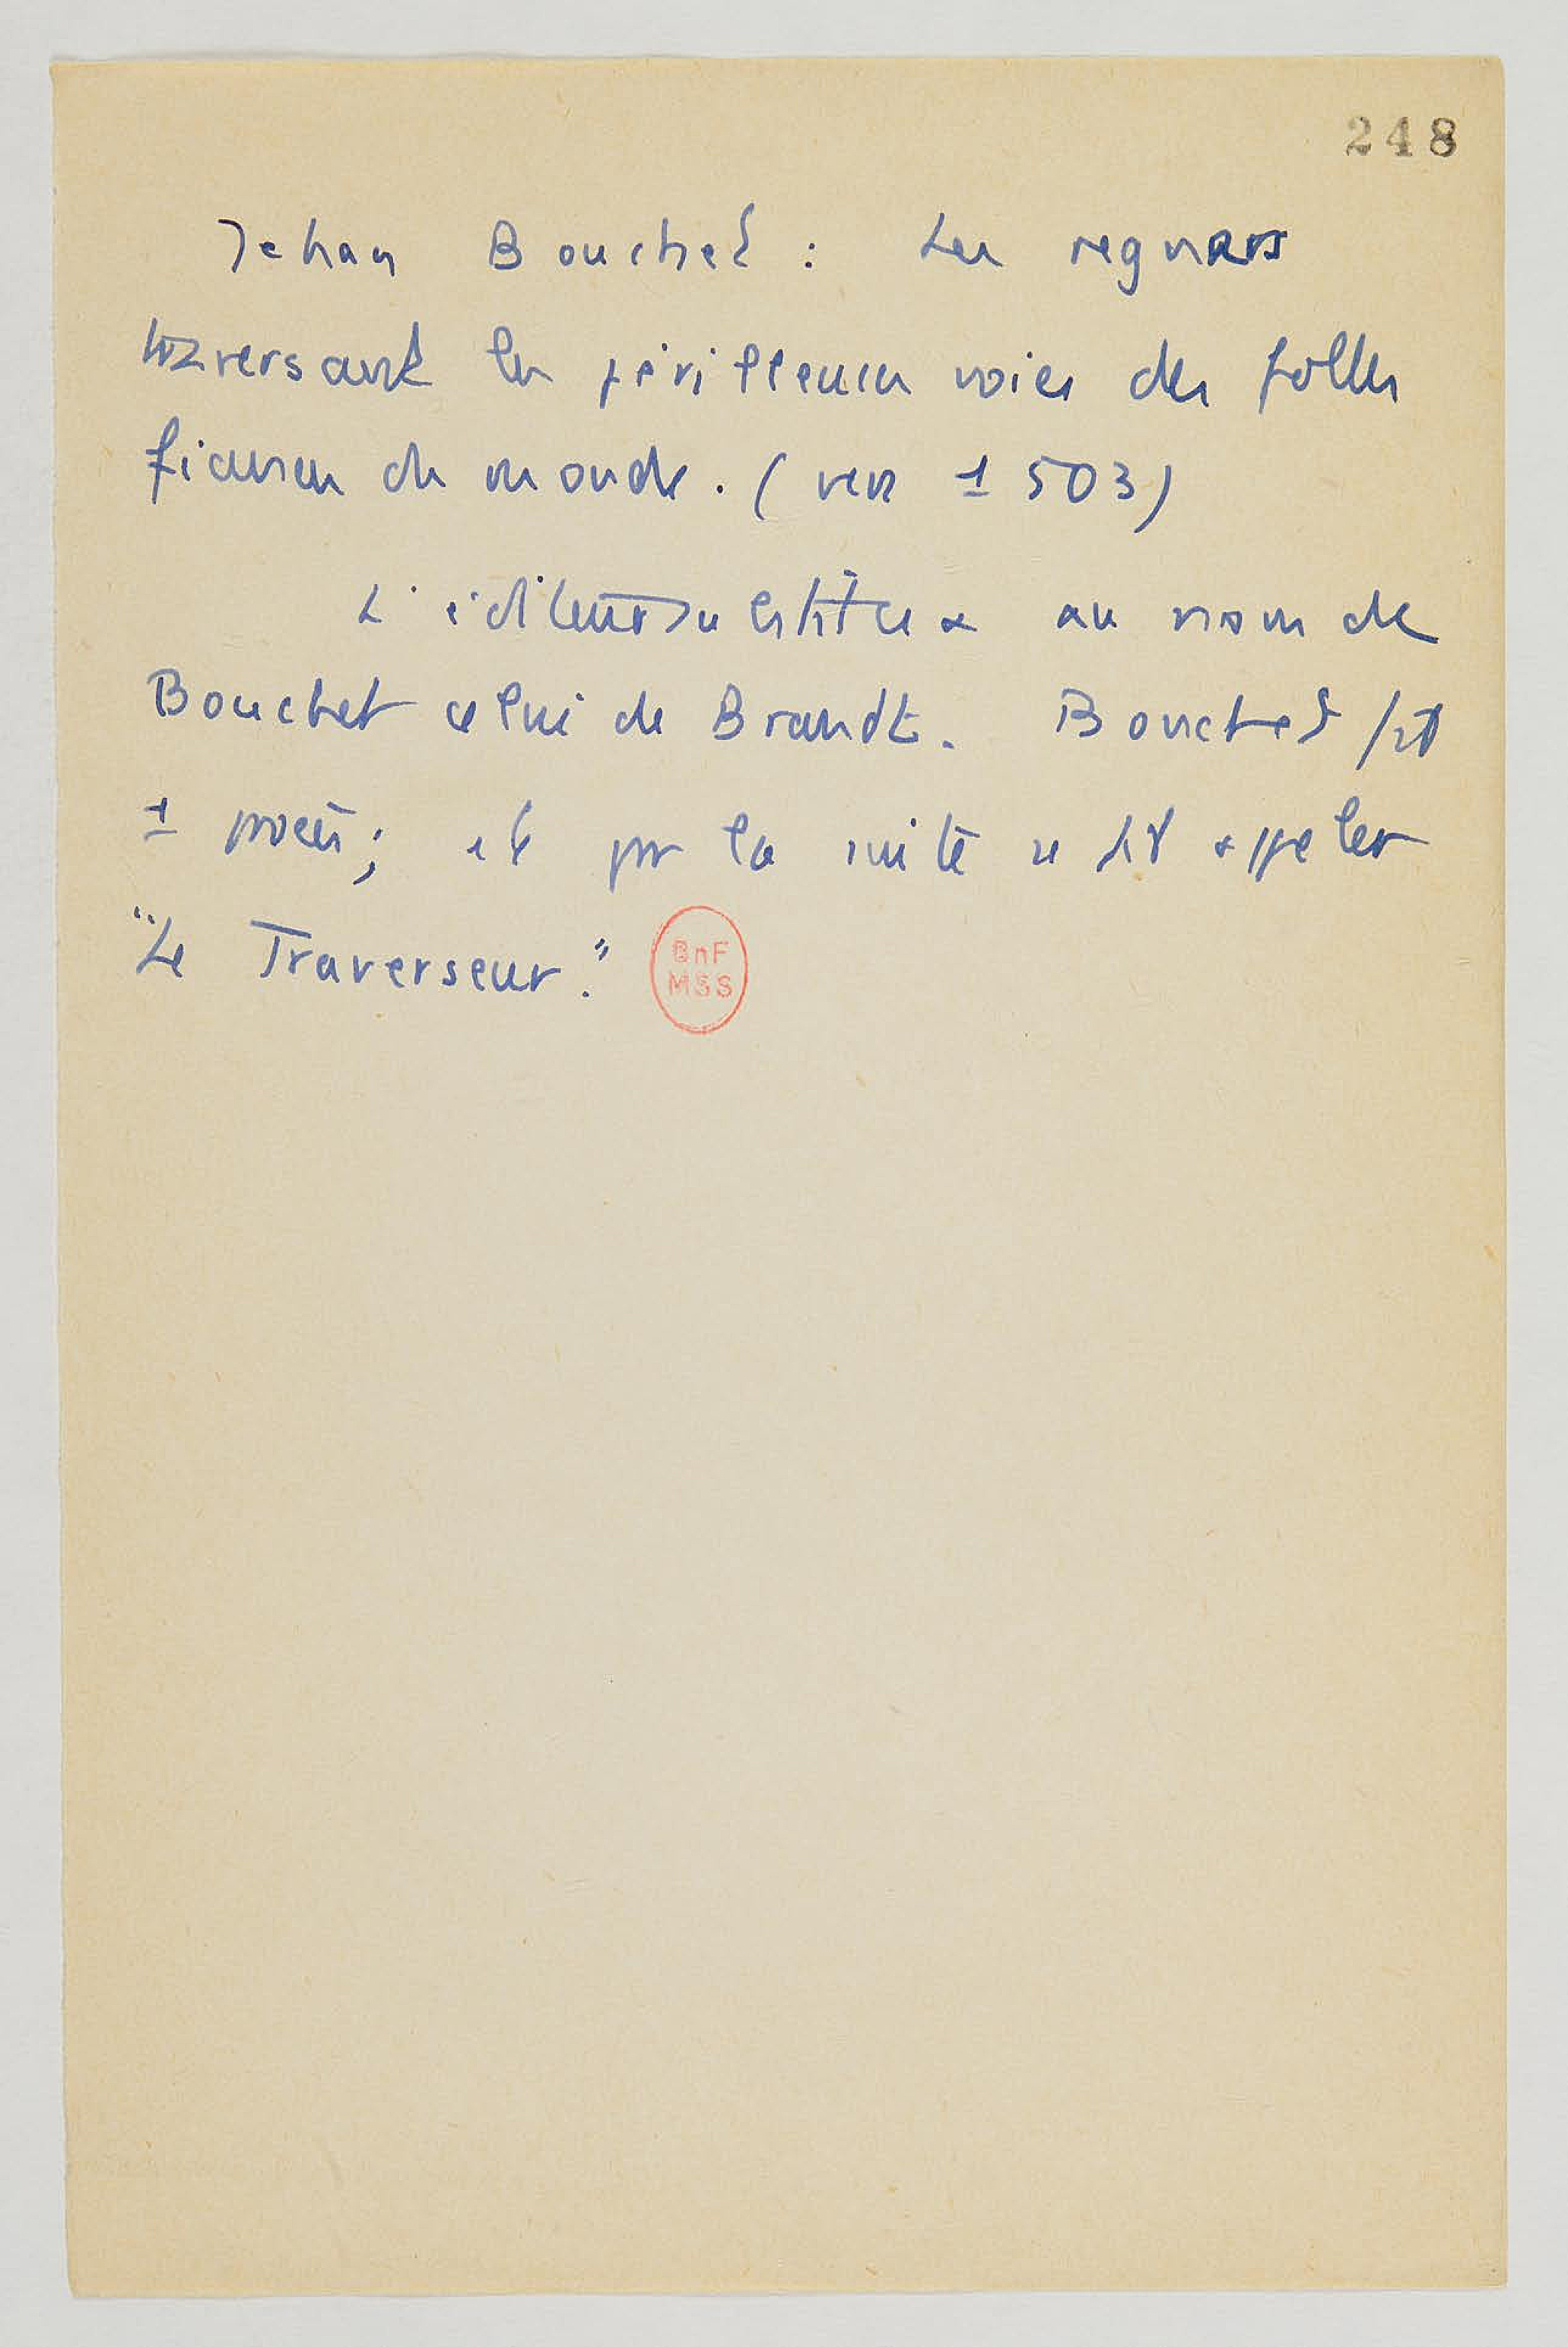 248
Jehan Bouchet : Les regnars
traversant les périlleuses voies des folles
fiances du monde. (vers 1503)
L'éditeur substitua au nom de
Bouchet celui de Brandt. Bouchet fit
1 procès ; et par la suite se fit appeler
"Le Traverseur."
BnF
MSS